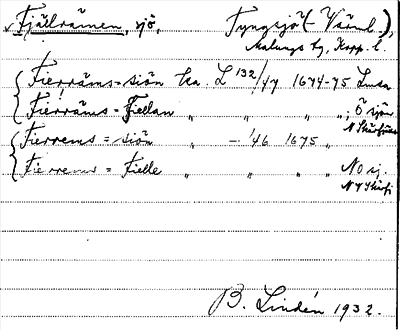 Fjällrämen, sjö, Tyngsjö (- Värml.),
Malungs tg, Kopp. l.
Fierräms=siön Ka. L 132/47 1674-75 Lma
Fierräms=Fiellan " " " "; Ö sjön
N
Fierrems=siön " -"- 46 1675 "
Fierrems=Fielle " " " " NO sj.
B. Lindén 1932.